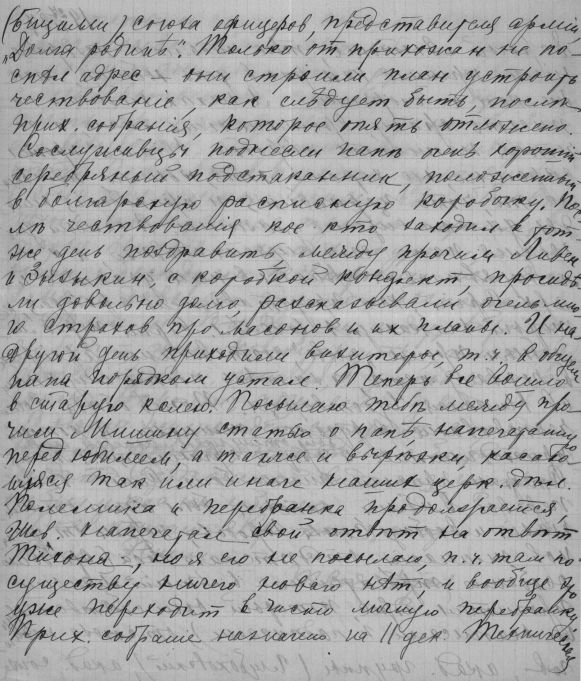 (бившим) союза офицеров, представителя армии
„Долга родинѣ“. Только от прихожан не по-
спѣл адрес — они строили план устроить
чествованіе, как слѣдует быть, послѣ
прих. собранія, которое опять отложено.
Сослуживцы поднесли папѣ очень хорошій
серебряный подстаканник, положенный
в болгарскую расписную коробочку. По-
слѣ чествованія кое кто заходил в тот
же день поздравить, между прочим Ливен
и Зызыкин, с коробкой конфект, просидѣ-
ли довольно долго, рассказывали очень мно-
го страхов про масонов и их планы. И на
другой день приходили визитеры, т. ч. в общем
папа порядком устал. Теперь все вошло
в старую колею. Посылаю тебѣ между про-
чим Мишину статью о папѣ, напечатанную
перед юбилеем, а также и вырѣзки, касаю-
щіяся так или иначе наших церк. дѣл.
Полемика и перебранка продолжается
напечатал свой отвѣт на отвѣт
Тихона, но я его не посылаю, п. ч. там по
существу ничего новаго нѣт, и вообще это
уже переходит в чисто личную перебранку.
Прих. собраніе назначено на 11 дек.